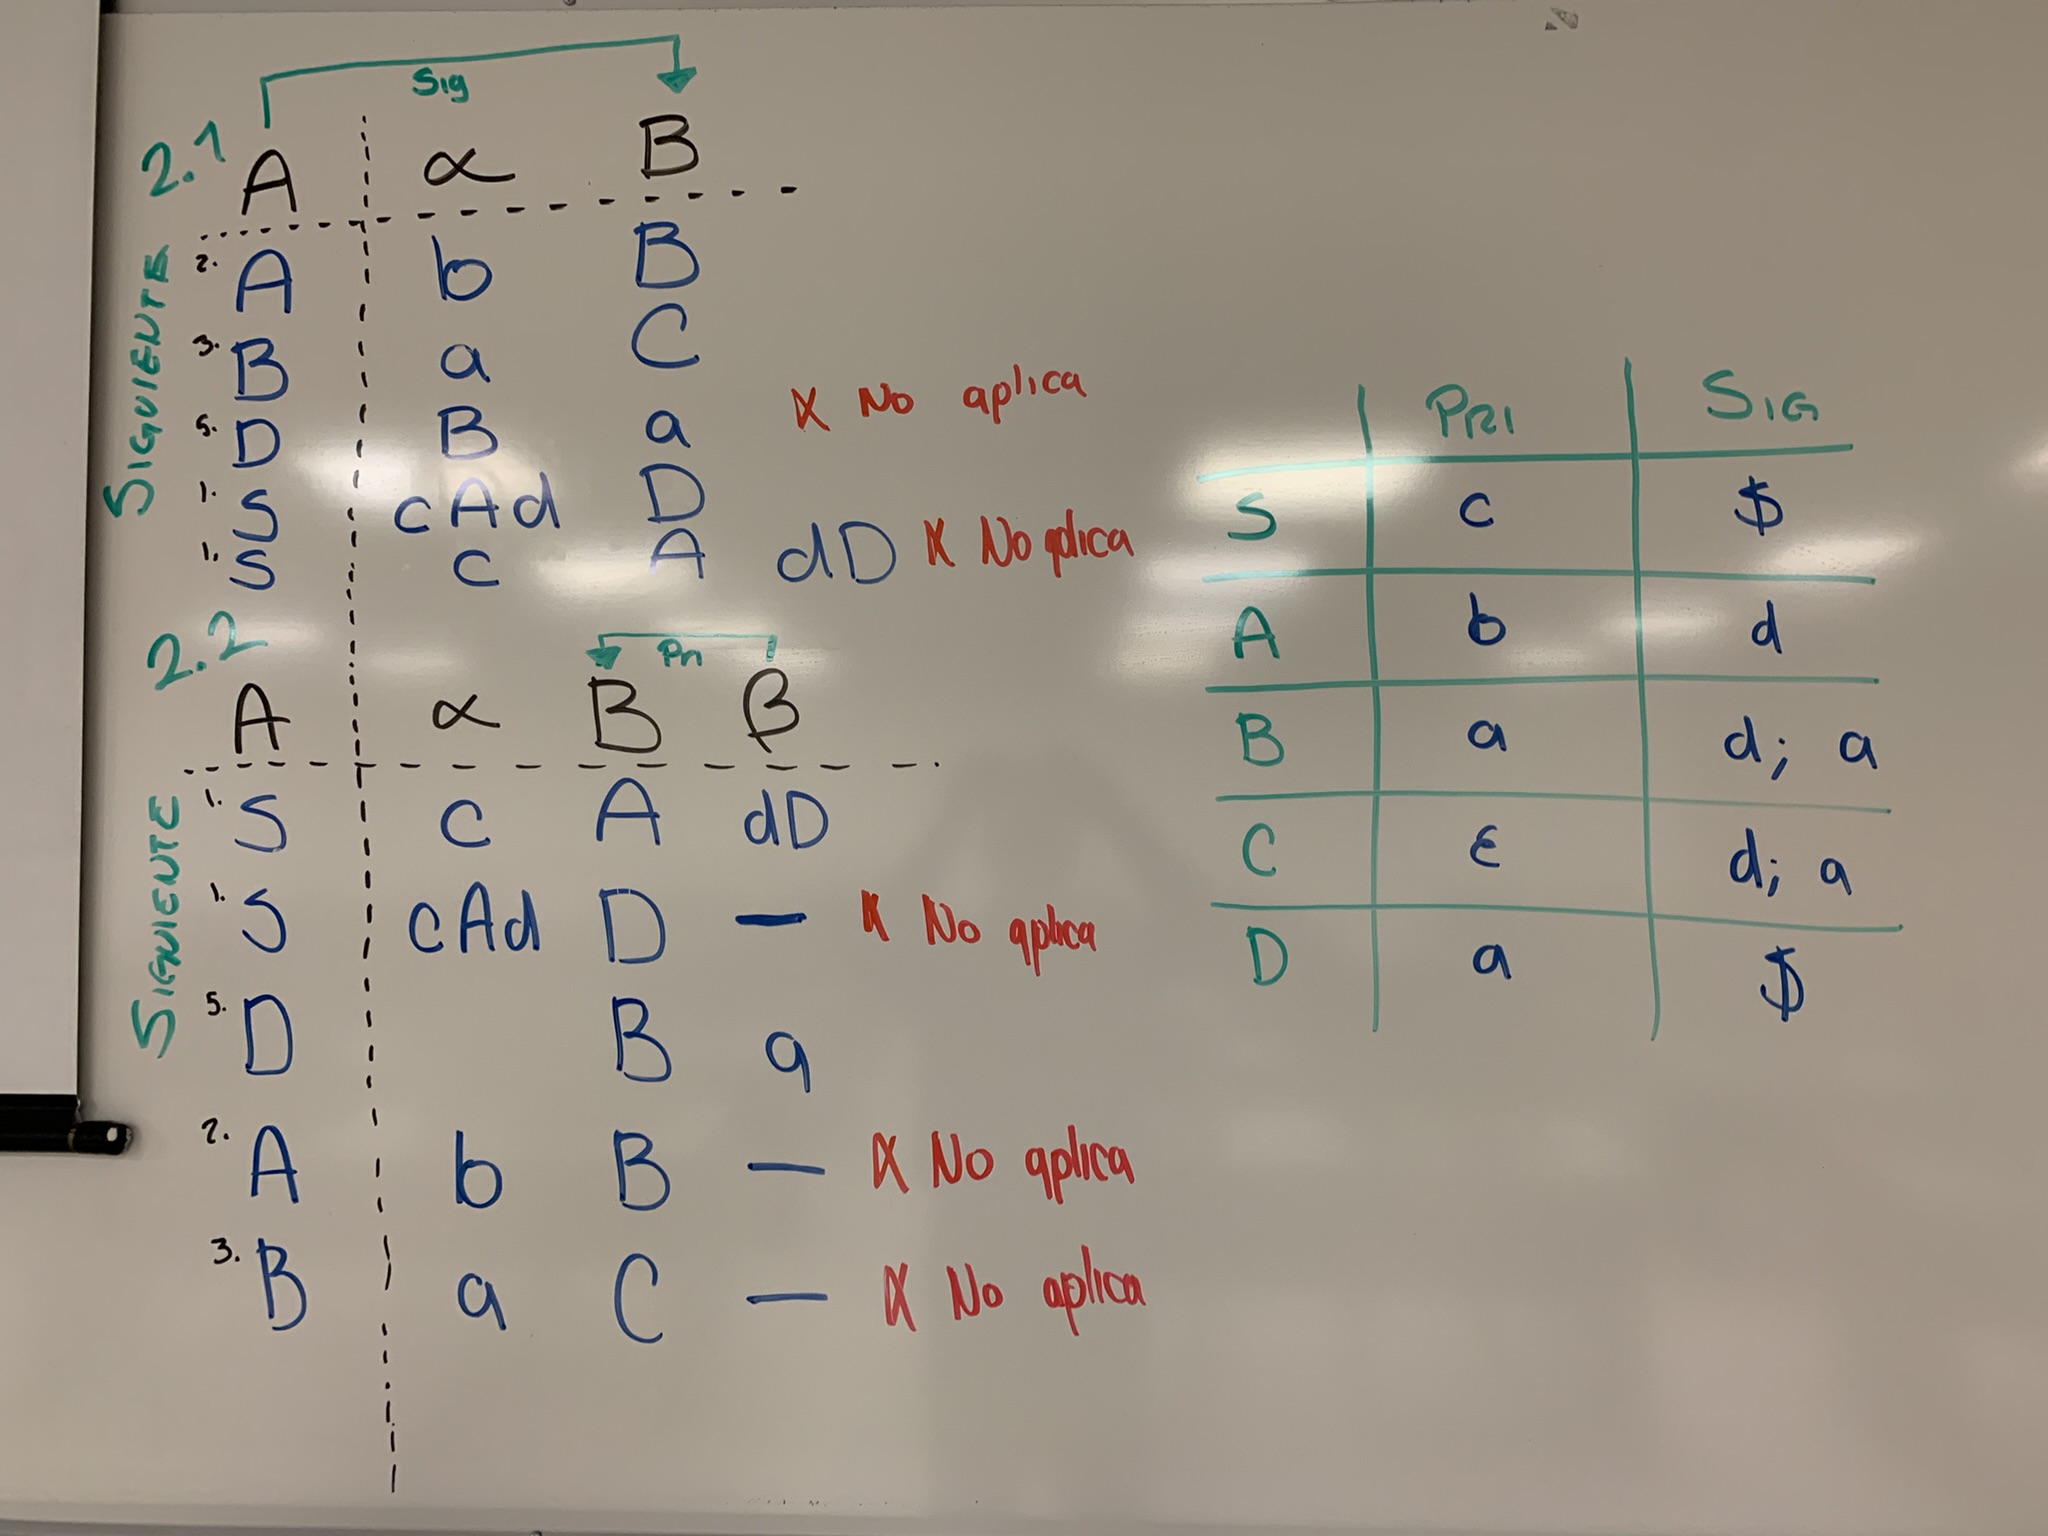 Sig
2.1 A α B
SIGUIENTE
2. A b B
3. B a C
5. D B a X No aplica
1. S cAd D
1. S c A dD X No aplica
2.2
Pri
A α B β
SIGUIENTE
1. S c A dD
1. S cAd D — X No aplica
5. D B a
2. A b B — X No aplica
3. B a C — X No aplica
PRI SIG
S c $
A b d
B a d; a
C ε d; a
D a $